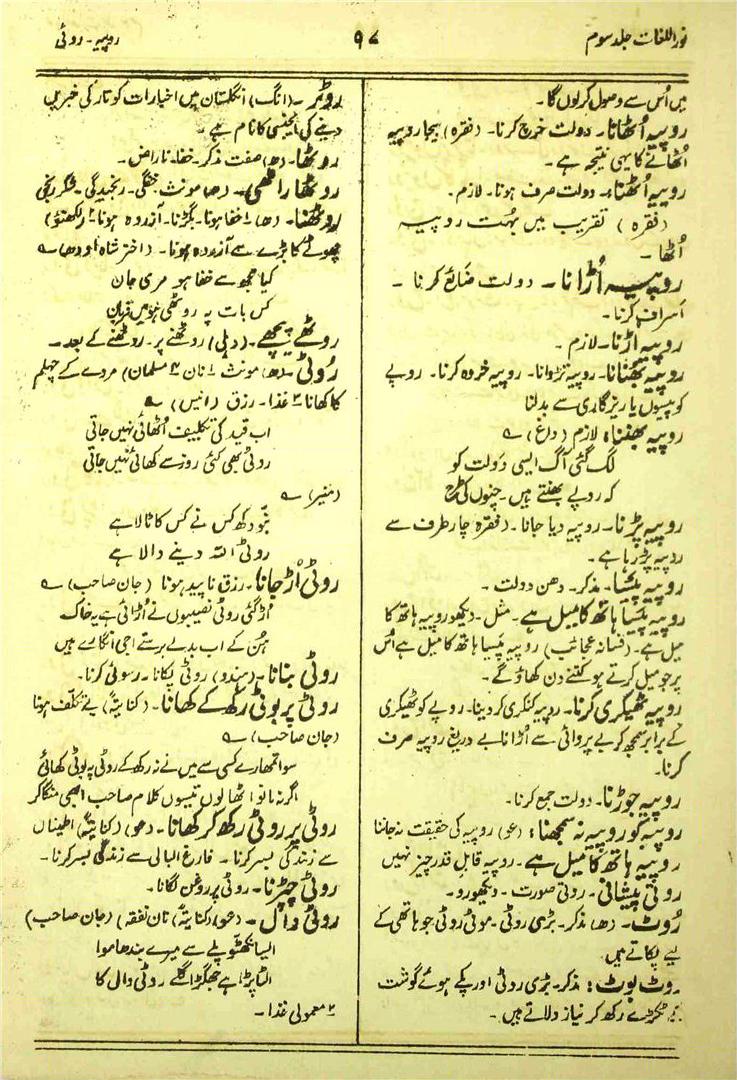 نور اللغات جلد سوم
۹۷
روپیہ - روٹی
میں اُس سے وصول کر لوں گا۔
روپیہ اُٹھانا۔ دولت خرچ کرنا۔ (فقرہ) بیجا روپیہ
اُٹھانے کا یہی نتیجہ ہے۔
روپیہ اُٹھنا۔ دولت صرف ہونا۔ لازم۔
(فقرہ) تقریب میں بہُت روپیہ
اُٹھا۔
روپیہ اُڑانا۔ دولت ضائع کرنا۔
اسراف کرنا۔
روپیہ اڑنا۔ لازم۔
روپیہ بھُنانا۔ روپیہ تڑوانا۔ روپیہ خردہ کرنا۔ روپے
کو پیسوں یا ریزگاری سے بدلنا
روپیہ بھننا: لازم (داغ) ؎
لگ گئی آگ ایسی دَولت کو
کہ روپے بھنتے ہیں۔ چنوں کی طرح
روپیہ پڑنا۔ روپیہ دیا جانا۔ (فقرہ) چار طرف سے
روپیہ پڑ رہا ہے۔
روپیہ پَیسا۔ مذکر۔ دھن دولت۔
روپیہ پَیسا ہاتھ کا میل ہے۔ مثل۔ دیکھو روپیہ ہاتھ کا
میل ہے۔ (فسانہ عجائب) روپیہ پَیسا ہاتھ کا میل ہے اُس
پر جو میل کرتے ہو کتنے دن کھاؤ گے۔
روپیہ ٹھیکری کرنا۔ روپیہ کنکری کر دینا۔ روپے کو ٹھیکری
کے برابر سمجھ کر بے پروائی سے اُڑانا بے دریغ روپیہ صرف
کرنا۔
روپیہ جوڑنا۔ دولت جمع کرنا۔
روپیہ کو روپیہ نہ سمجھنا: (عو) روپیہ کی حقیقت نہ جاننا
روپیہ ہاتھ کا میل ہے۔ روپیہ قابل قدر چیز نہیں
روتی پیشانی۔ روتی صورت۔ دیکھو رو۔
رُوٹ۔ (ھ) مذکر۔ بڑی روٹی۔ موٹی روٹی جو ہاتھی کے
لیے پکاتے ہیں۔
روٹ بوٹ: مذکر۔ بڑی روٹی اور پکے ہوئے گوشت
کے ٹکڑے رکھ کر نیاز دلاتے ہیں۔
روٹر۔ (انگ) انگلستان میں اخبارات کو تار کی خبریں
دینے کی ایجنسی کا نام ہے۔
روٹھا۔ (ھ) صفت مذکر۔ خفا۔ ناراض۔
روٹھا راٹھی۔ (ھ) مونث خفگی۔ رنجیدگی۔ شکر رنجی
روٹھنا۔ (ھ) ۱ خفا ہونا۔ بگڑنا۔ آزردہ ہونا۔ ۲ (لکھنؤ)
چھوٹے کا بڑے سے آزردہ ہونا۔ (اختر شاہ اودھ) ؎
کیا مجھ سے خفا ہو مری جان
کس بات پہ روٹھی ہو میں قربان
روٹھے پیچھے۔ (دہلی) روٹھنے پر۔ روٹھنے کے بعد۔
رُوٹی۔ (ھ) مونث ۱ نان ۲ مسلمان) مردے کے چہلم
کا کھانا ۳ غذا۔ رزق (انیس) ؎
اب قید کی تکلیف اُٹھائی نہیں جاتی
روٹی بھی کئی روز سے کھائی نہیں جاتی
(منیر) ؎
بَنّو دکھ کس نے کس کا ٹالا ہے
روٹی اللہ دینے والا ہے
روٹی اُڑ جانا۔ رزق ناپید ہونا (جان صاحب) ؎
اُڑ گئی روٹی نصیبوں نے اُڑائی ہے خاک
ہُن کے اب بدلے برستے اجی انگارے ہیں
روٹی بنانا۔ (ہندو) روٹی پکانا۔ رسوئی کرنا۔
روٹی پر بوٹی رکھ کے کھانا۔ (کنایتہً) بے تکلف ہونا
(جان صاحب) ؎
سوا تمھارے کسی سے میں نے نہ رکھ کے روٹی پہ بوٹی کھائی
اگر نہ مانو اٹھا لوں تیسوں کلام صاحب ابھی منگا کر
روٹی پر روٹی رکھ کر کھانا۔ (عو) (کنایتہً) اطمینان
سے زندگی بسر کرنا۔ فارغ البالی سے زندگی بسر کرنا۔
روٹی چپڑنا۔ روٹی پر روغن لگانا۔
روٹی دال۔ (عو) (کنایتہً) نان نفقہ) (جان صاحب)
ایسا نکھٹو پلے سے میرے بندھا موا
الٹا پڑا ہے جھگڑا گلے روٹی دال کا
۲ معمولی غذا۔